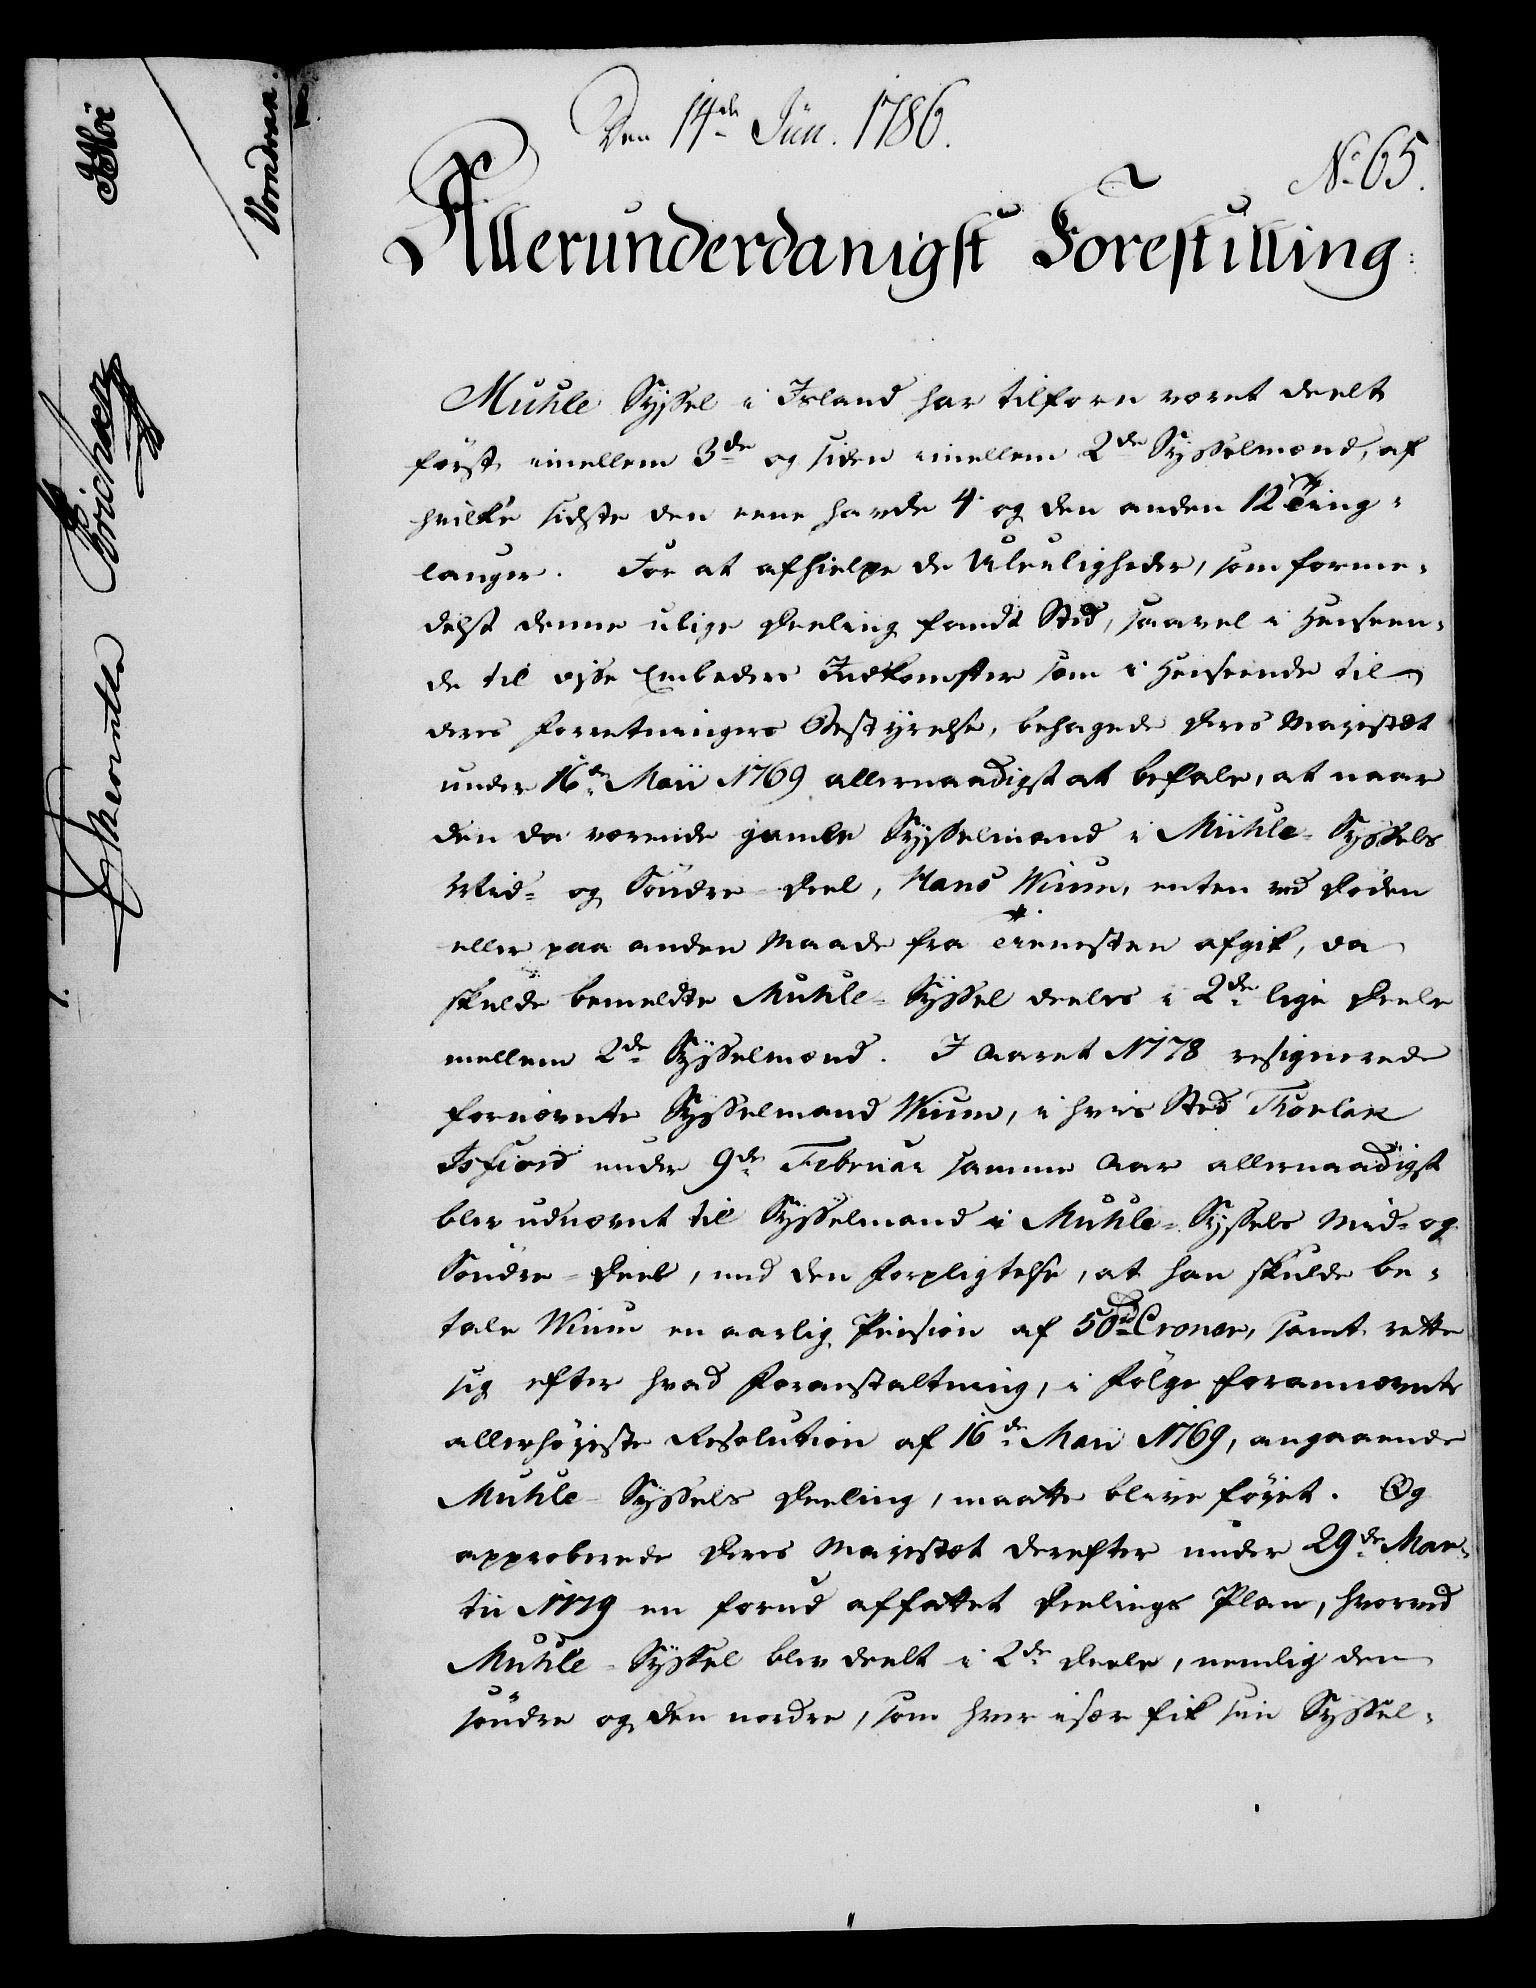 Den 14de Jún. 1786.
No 65.
Allerunderdanigst Forestilling:
Múhle Syssel i Island har tilforn været deelt
først imellem 3de og siden imellem 2de Sysselmænd, af
hvilke sidste den eene havde 4 og den anden 12 Ting-
lauger. For at afhielpe de Uleyligheder, som forme-
delst denne ulige Deeling fandt Sted, saavel i Henseen-
de til disse Embeders Indkomster som i Henseende til
deres Forretningers Bestyrelse, behagede Deres Majestæt
under 16de Maii 1769 allernaadigst at befale, at naar
den da værende gamle Sysselmand i Múhle-Syssels
Mid- og Søndre-Deel, Hans Wium, enten ved Døden
eller paa anden Maade fra Tienesten afgik, da
skulde bemeldte Múhle-Syssel deeles i 2de lige Deele
mellem 2de Sysselmænd. I Aaret 1778 resignerede
fornævnte Sysselmand Wium, i hvis Sted Thorlak
Isfiord under 9de Februar samme Aar allernaadigst
blev udnævnt til Sysselmand i Múhle-Syssels Mid- og
Søndre-Deel, med den Forpligtelse, at han skulde be-
tale Wium en aarlig Pension af 50rd Croner, samt rette
sig efter hvad Foranstaltning, i Følge forannævnte
allerhøjeste Resolution af 16de Maii 1769, angaaende
Múhle-Syssels Deeling, maatte blive føjet. Og
approberede Deres Majestæt derefter under 29de Mar-
tii 1779 en forud affattet Deelings Plan, hvorved
Múhle-Syssel blev deelt i 2de Deele, nemlig den
søndre og den nordre, som hver især fik sin Syssel-